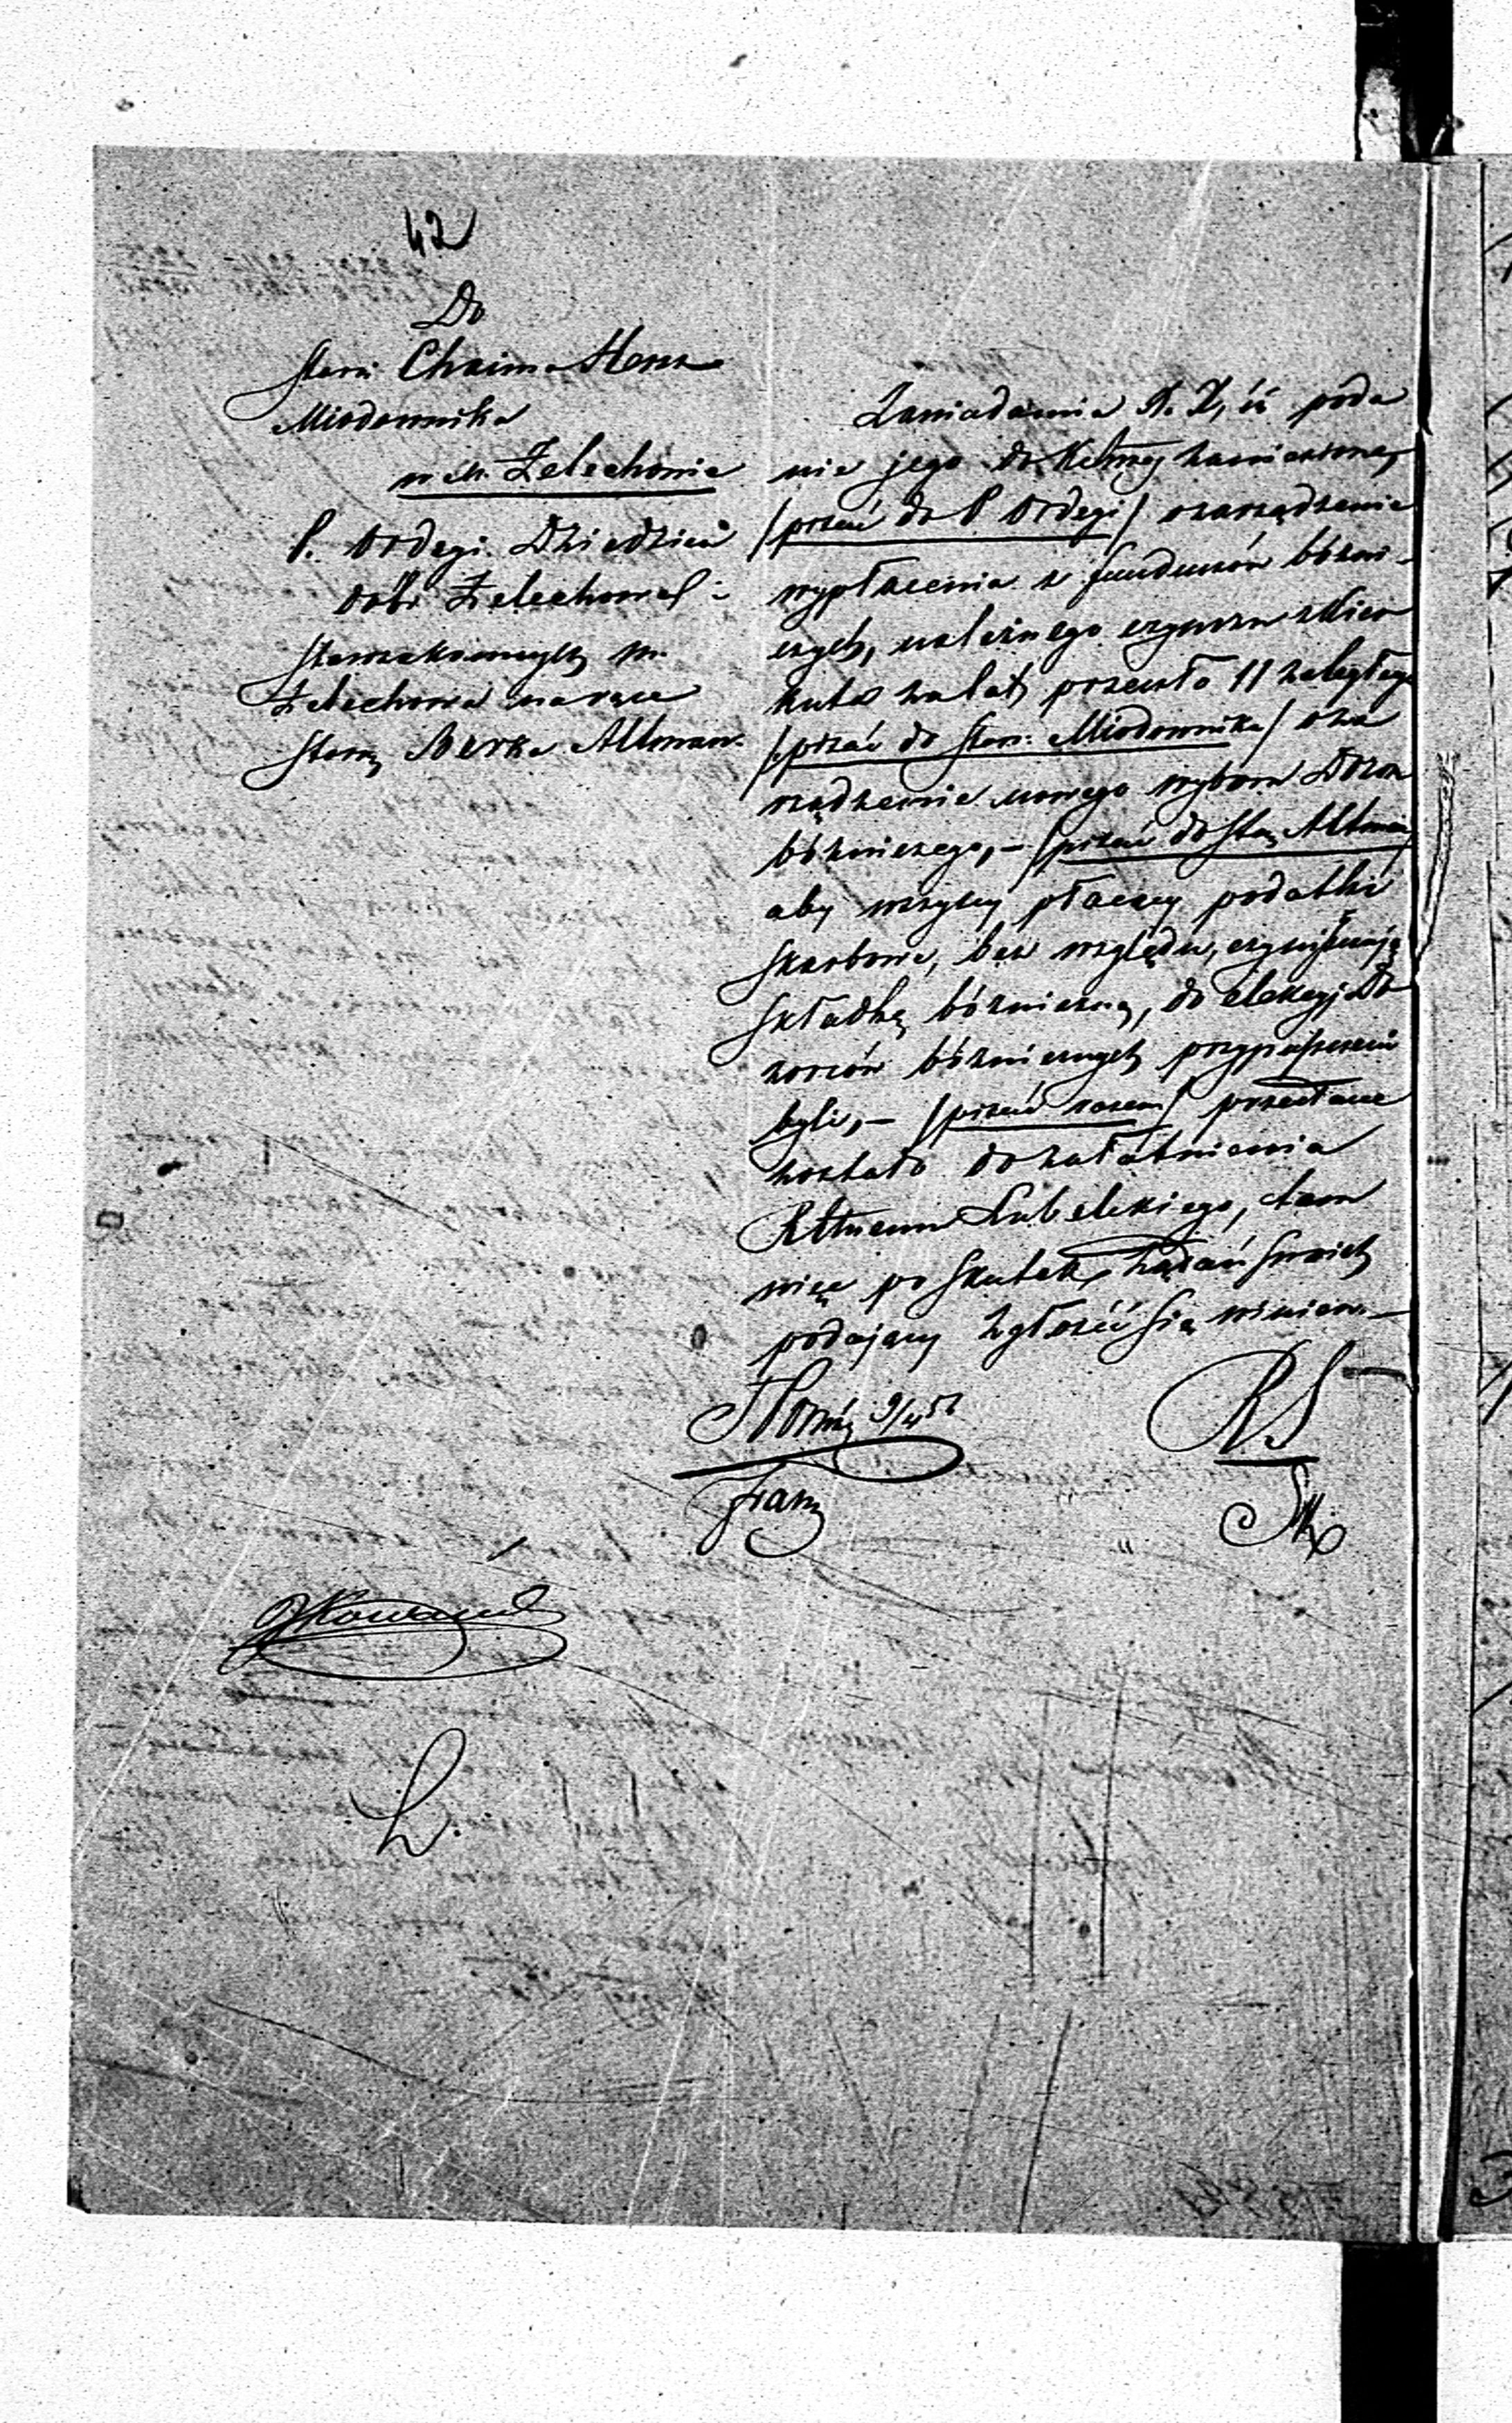 42
Do
Star: Chaima Hersz
Miodownika
w m. Żelechowie
P. Ordęgi Dziedzica
dóbr Żelechowsk:
Starozakonnych m.
Żelechowa na ręce
Star: Berka Altman.
Zawiadamia P. D, iż poda
nie jego do Komiej zaniesione,
/pisać do P Ordęgi/ o zarządzenie
wypłacenia z funduszów bóżni-
czych, należnego czynszu
za lat przeszło 11 zaległego
/pisać do Star: Miodownika/ o za
rządzenie nowego wyboru Dozoru
bóżniczego, – /pisać do Star Altman/
aby wszyscy płacący podatki
skarbowe, bez względu, czy opłacają
składkę bóżniczną, do elekcyj Do
zorców bóżnicznych przypuszczeni
byli, – /pisać razem/ przesłane
zostało do załatwienia
RGtnemu Lubelskiego, tam
więc po skutek żądań swoich
podający zgłosić się winien. –
9/4 56
RS